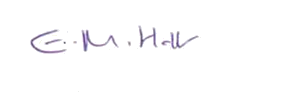 E. M. Hall